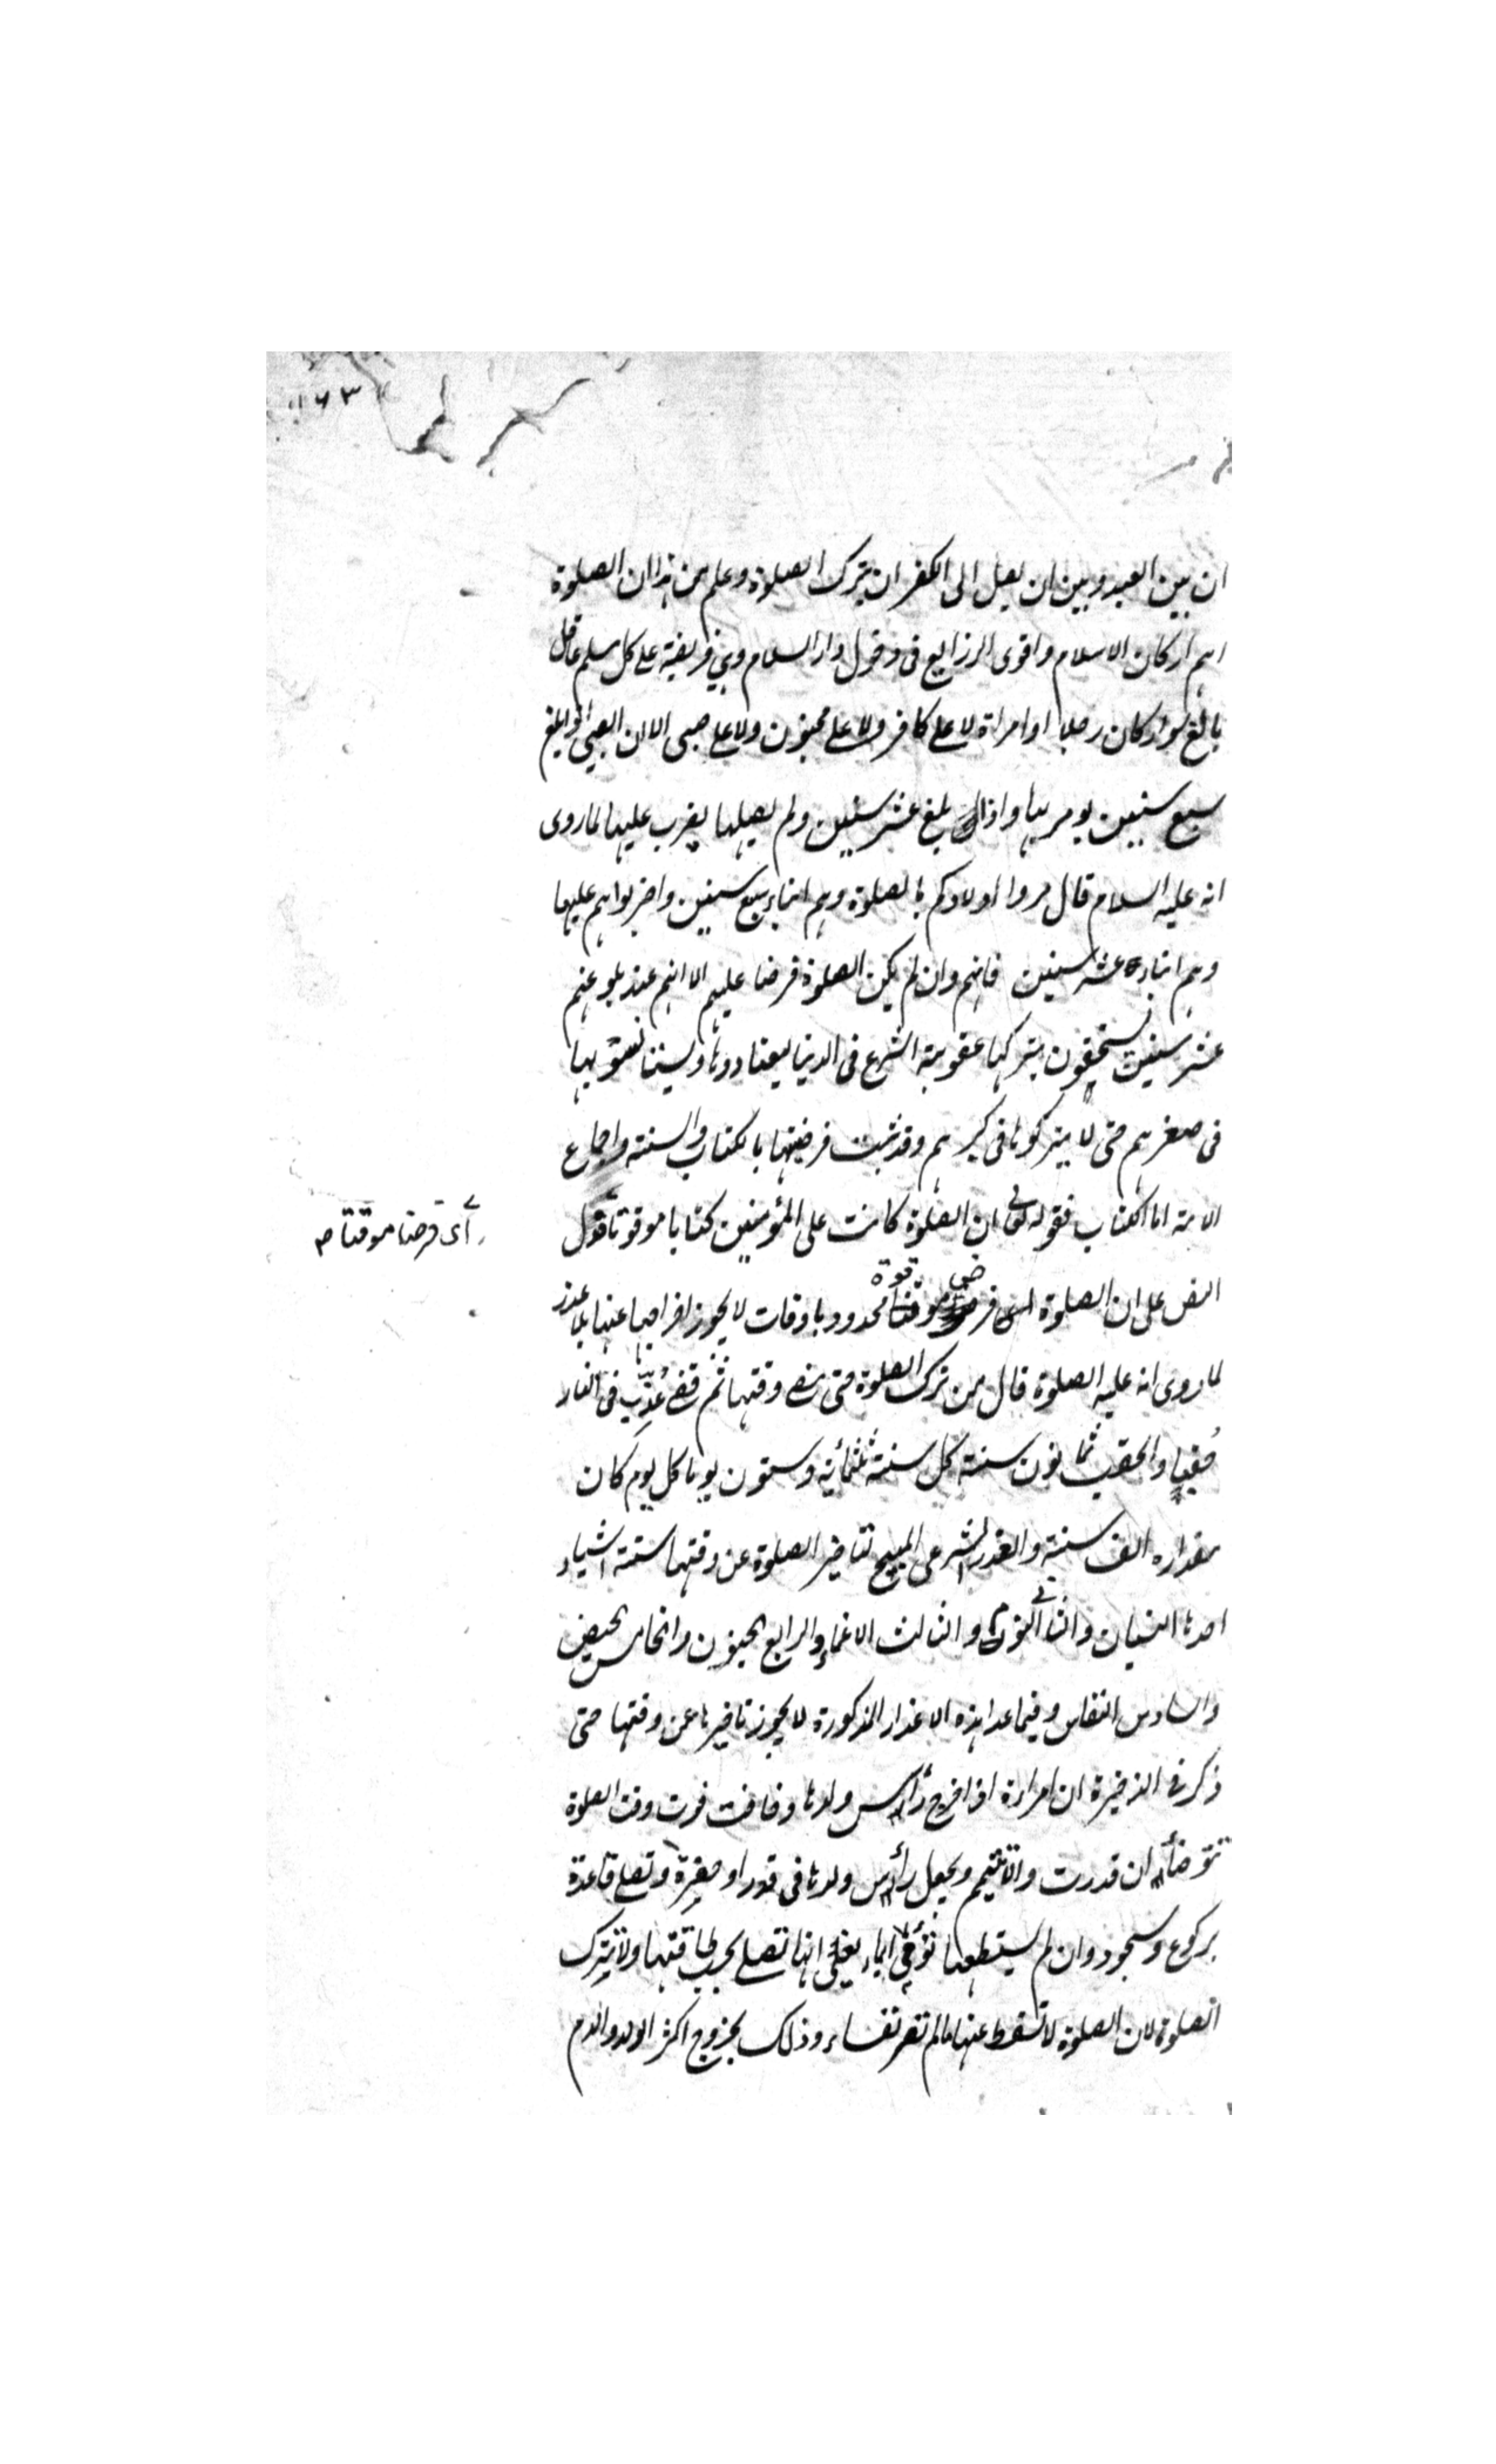 ١٦٣
ان بين العبد وبين ان يصل الى الكفر ان يترك الصلوة وعلم من هذا ان الصلوة
اهم اركان الاسلام واقوى الزرايع فى دخول دار السلام وهي فريضة على كل مسلم عاقل
بالغ سواء كان رجلا او امراة لا على كافر ولا على مجنون ولا على صبى الا ان الصبي اذا بلغ
سبع سنين يومر بها واذا بلغ عشر سنين ولم يصلها يضرب عليها لما روى
انه عليه السلام قال مروا اولادكم بالصلوة وهم ابناء سبع سنين واضربواهم عليها
وهم ابناء عشر سنين فانهم وان لم يكن الصلوة فرضا عليهم الا انهم عند بلوغهم
عشر سنين يستحقون بتركها عقوبة الشرع فى الدنيا ليعتادوها ويستانسوا بها
فى صغرهم حتى لا يتركوها فى كبرهم وقد ثبت فرضيتها بالكتاب والسنة واجماع
الامة اما الكتاب فقوله تعالى ان الصلوة كانت على المؤمنين كتابا موقوتا فدل
أى فرضا موقتا ص
النص على ان الصلوة فرض موقوتة محدود باوقات لا يجوز اخراجها عنها بلا عذر
لما روى انه عليه الصلوة قال من ترك الصلوة حتى مضى وقتها ثم قضى عذب فى النار
حقبا والحقب ثمانون سنة كل سنة ثلثمائة وستون يوما كل يوم كان
مقداره الف سنة والعذر الشرعى المبيح لتاخير الصلوة عن وقتها ستة اشياء
احدها النسيان والثانى النوم والثالث الاغماء والرابع الجنون والخامس الحيض
والسادس النفاس وفيما عدا هذه الاعذار المذكورة لا يجوز تاخيرها عن وقتها حتى
ذكر فى الذخيرة ان امراءة اذا خرج رأس ولدها وخافت فوت وقت الصلوة
تتوضأ ان قدرت والا تتيمم ويجعل رأس ولدها فى قدر او حفيرة وتصلى قاعدة
بركوع وسجود وان لم يستطعها تؤمى ايماء يعنى انها تصلى بحسب طاقتها ولا تترك
الصلوة لان الصلوة لا تسقط عنها ما لم تصر نفساء وذلك بخروج اكثر الولد والدم